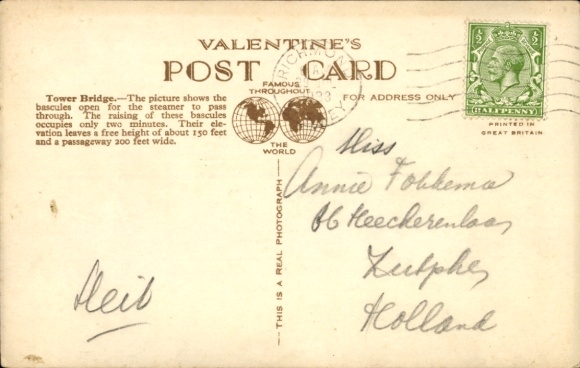 VALENTINE'S
POST CARD
FAMOUS
THROUGHOUT
THE
WORLD
FOR ADDRESS ONLY
Tower Bridge.—The picture shows the
bascules open for the steamer to pass
through. The raising of these bascules
occupies only two minutes. Their ele-
vation leaves a free height of about 150 feet
and a passageway 200 feet wide.
THIS IS A REAL PHOTOGRAPH
½ ½
HALFPENNY
PRINTED IN
GREAT BRITAIN
Miss
Annie Fokkema
Heeckerenlaan
Zutphen
Holland